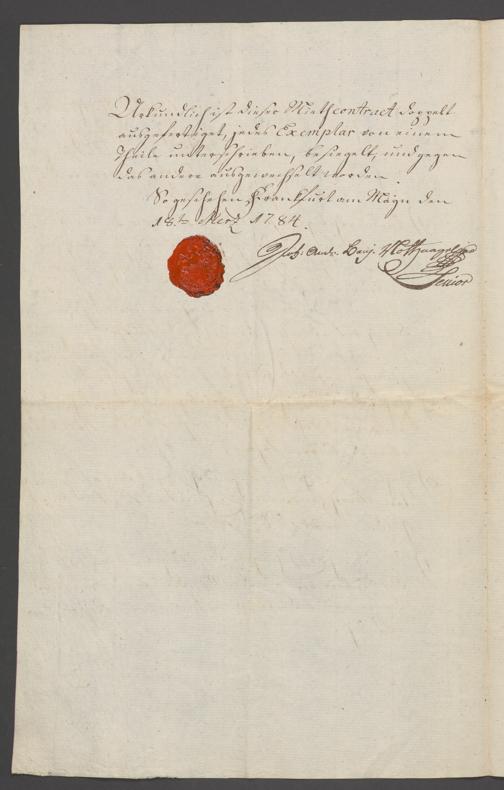 Urkundlich ist dieser Miethcontract doppelt
ausgefertiget, jedes Exemplar von einem
Theile unterschrieben, besiegelt, und gegen
das andere ausgewechselt worden.
So geschehen Franckfurt am Mayn den
18.ten Merz 1784.
Joh. Andr. Benj. Nothnagel
Senior